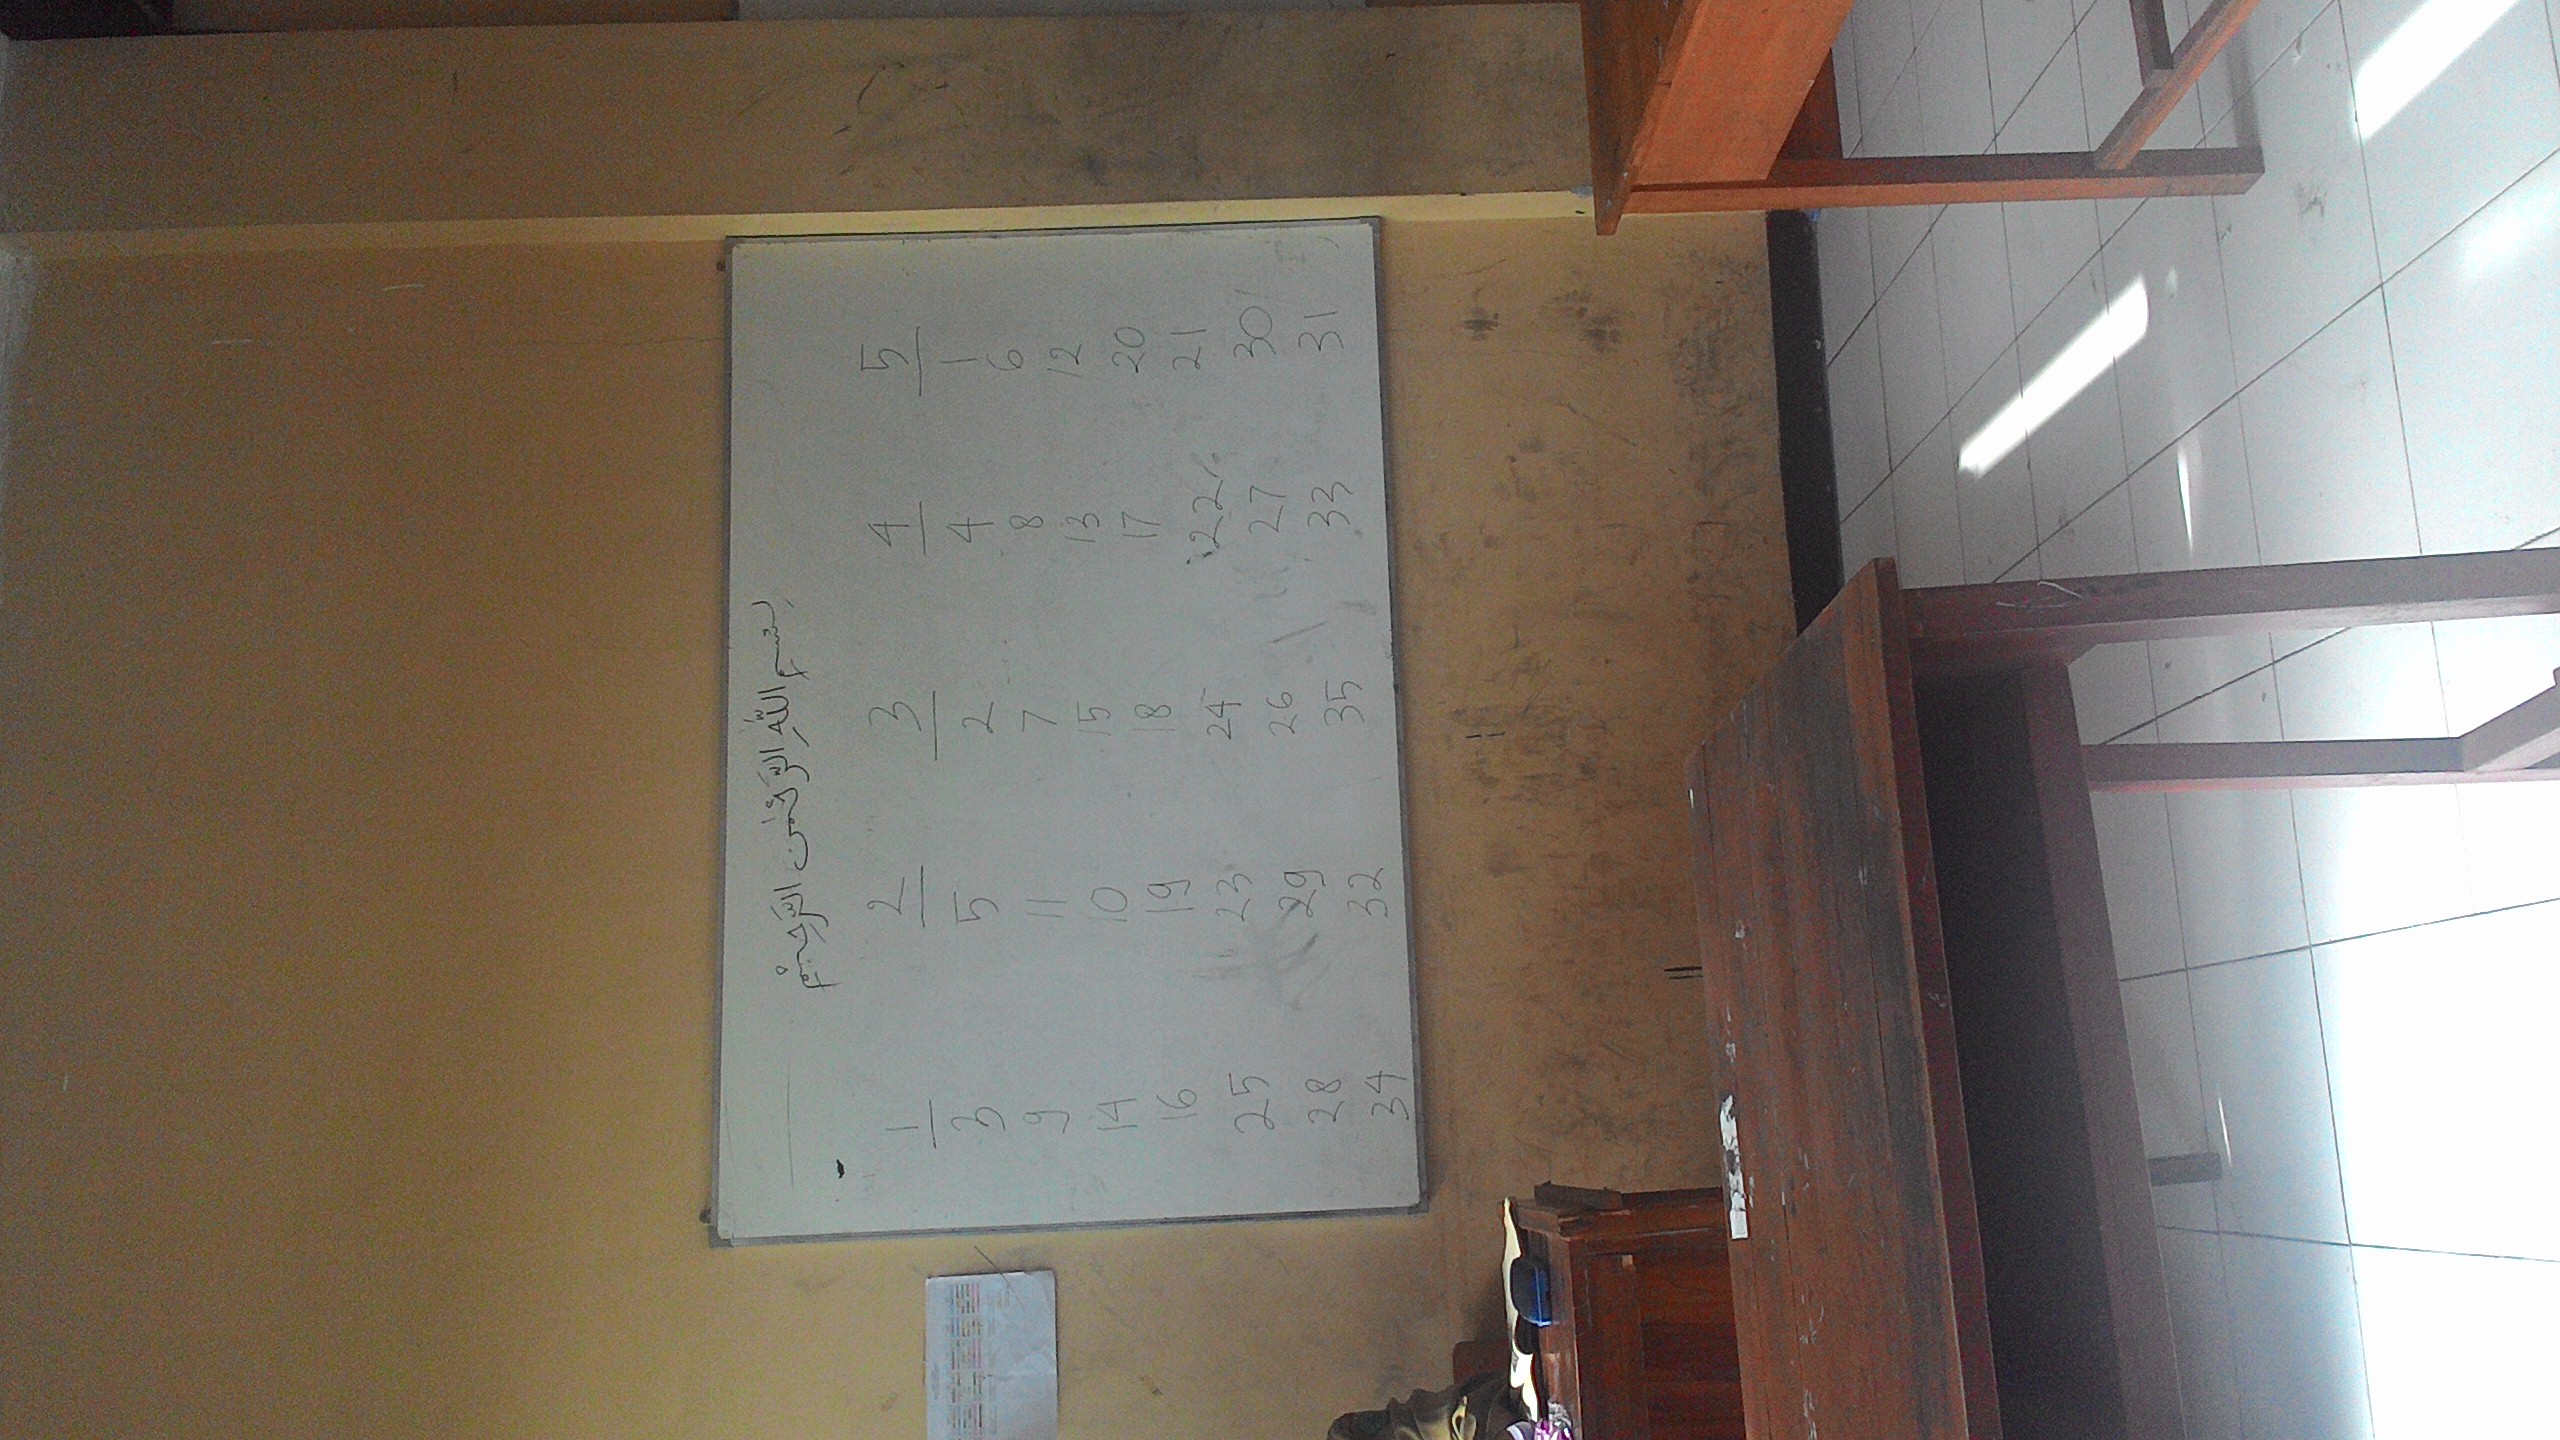 بِسْمِ اللّٰهِ الرَّحْمٰنِ الرَّحِيْمِ
1 2 3 4 5
3 5 2 4 1
9 11 7 8 6
14 10 15 13 12
16 19 18 17 20
25 23 24 22 21
28 29 26 27 30
34 32 35 33 31